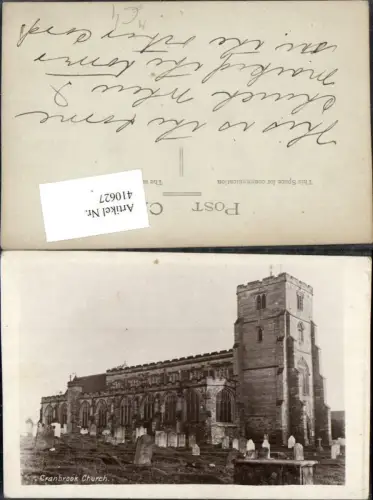 POST C
This Space for communication
The
Artikel Nr.
410627
This is the same
Church when I
marked the
in the other Card
Cranbrook Church.